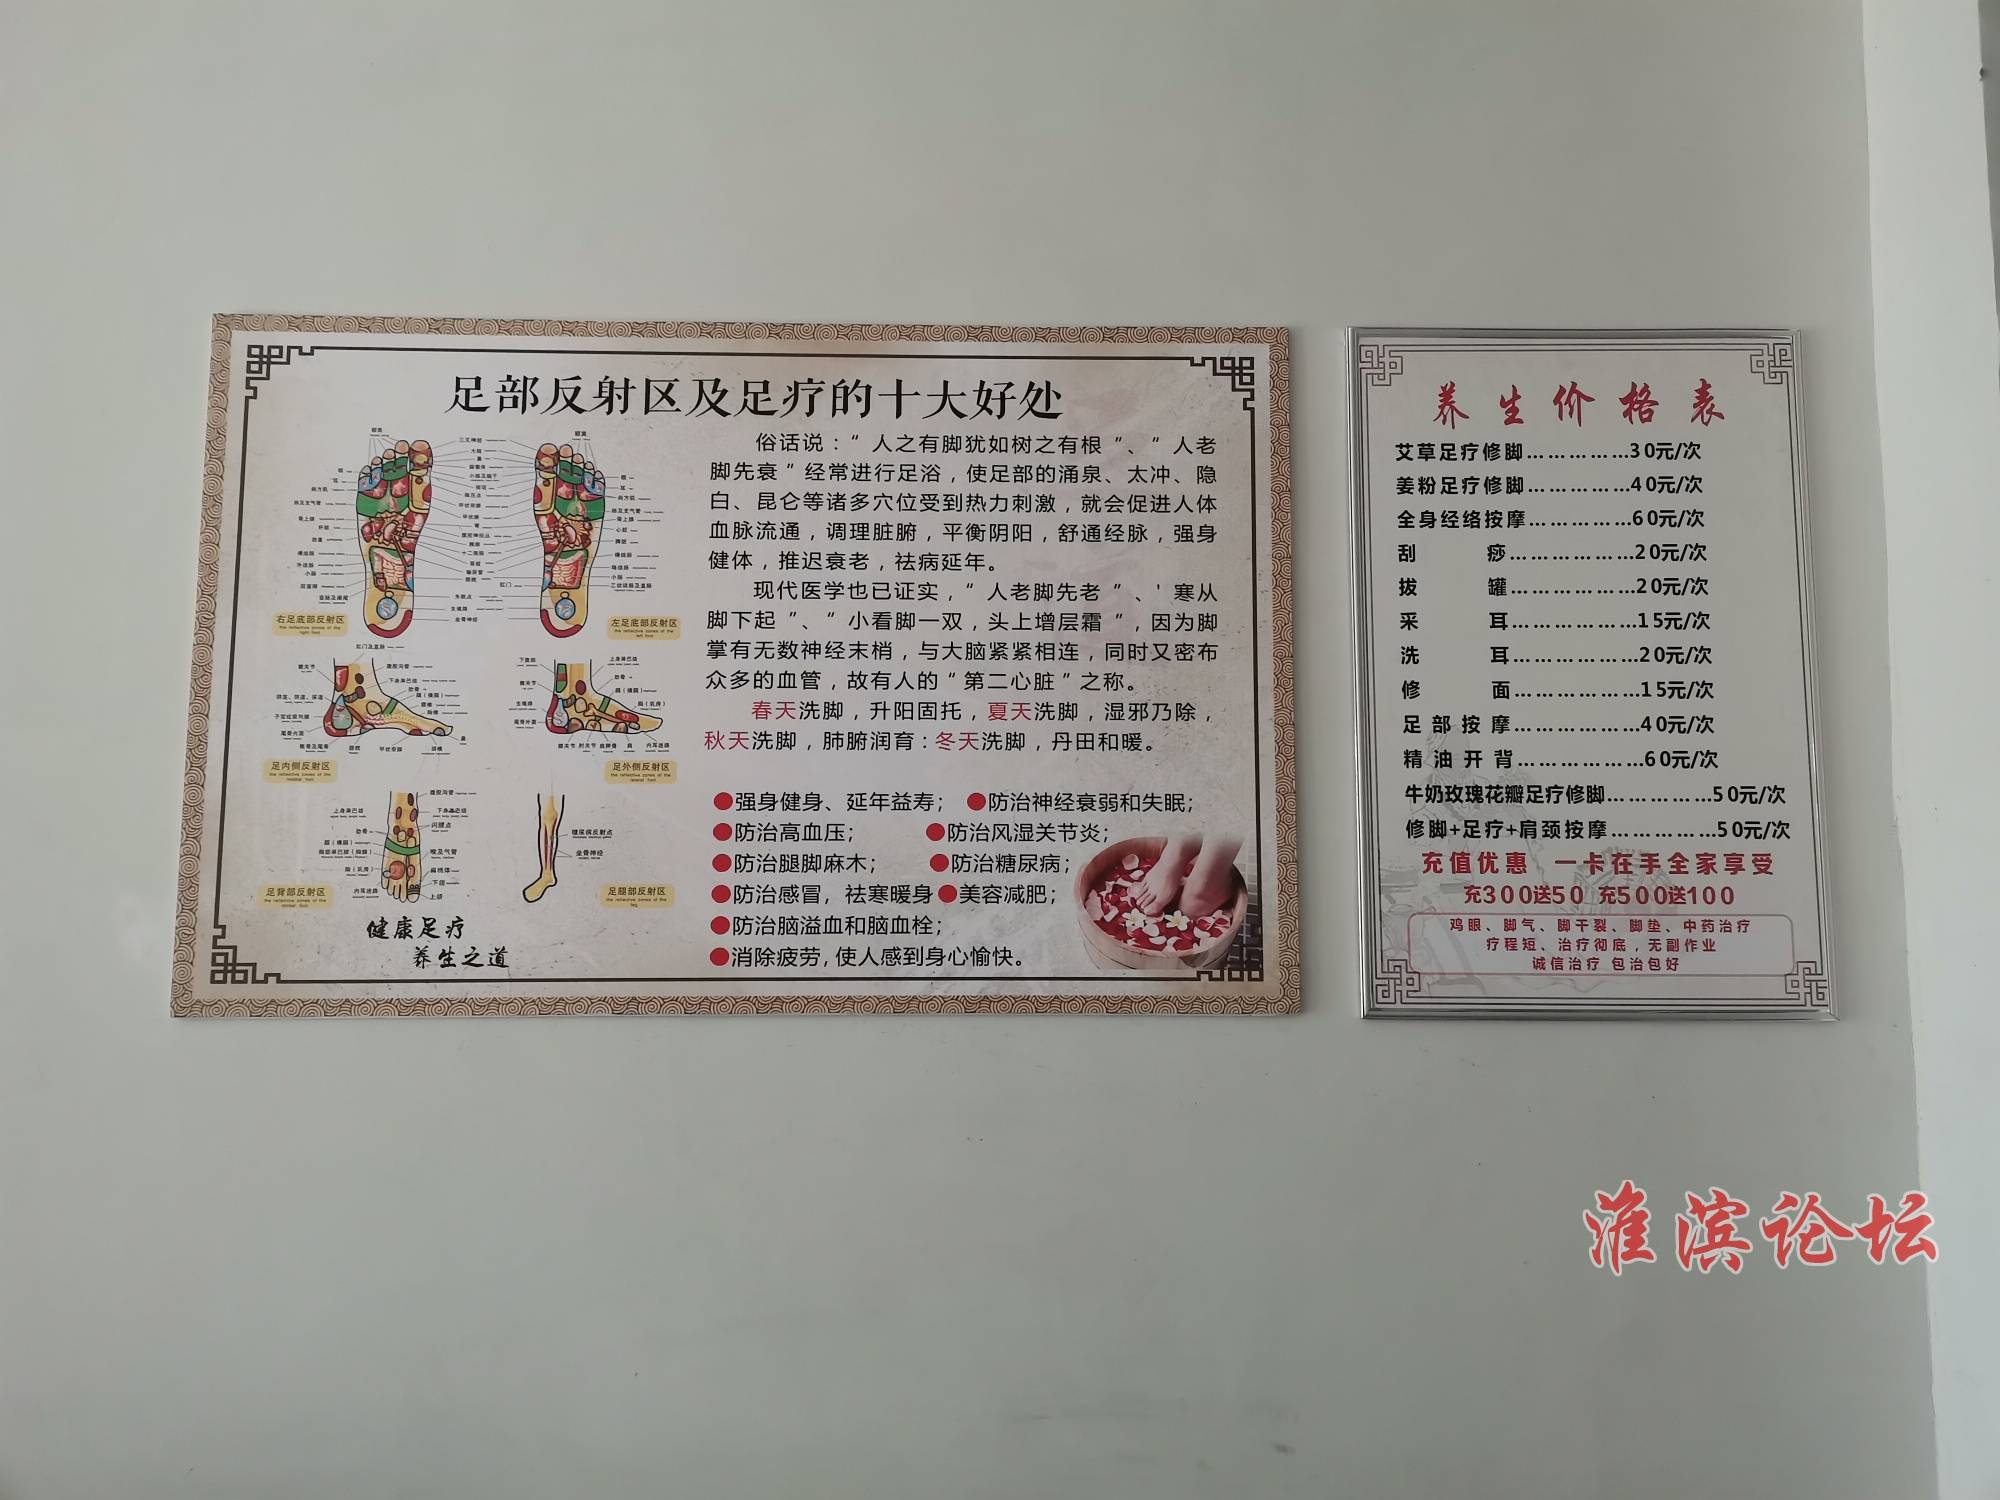 足部反射区及足疗的十大好处
俗话说：“人之有脚犹如树之有根”、“人老
脚先衰”经常进行足浴，使足部的涌泉、太冲、隐
白、昆仑等诸多穴位受到热力刺激，就会促进人体
血脉流通，调理脏腑，平衡阴阳，舒通经脉，强身
健体，推迟衰老，祛病延年。
现代医学也已证实，“人老脚先老”、'寒从
脚下起”、“小看脚一双，头上增层霜”，因为脚
掌有无数神经末梢，与大脑紧紧相连，同时又密布
众多的血管，故有人的“第二心脏”之称。
春天洗脚，升阳固托，夏天洗脚，湿邪乃除，
秋天洗脚，肺腑润育：冬天洗脚，丹田和暖。
●强身健身、延年益寿； ●防治神经衰弱和失眠；
●防治高血压； ●防治风湿关节炎；
●防治腿脚麻木； ●防治糖尿病；
●防治感冒，祛寒暖身 ●美容减肥；
●防治脑溢血和脑血栓；
●消除疲劳，使人感到身心愉快。
右足底部反射区
左足底部反射区
足内侧反射区
足外侧反射区
足背部反射区
足腿部反射区
健康足疗
养生之道
养生价格表
艾草足疗修脚……………30元/次
姜粉足疗修脚……………40元/次
全身经络按摩……………60元/次
刮 痧………………20元/次
拔 罐………………20元/次
采 耳………………15元/次
洗 耳………………20元/次
修 面………………15元/次
足部按摩………………40元/次
精油开背………………60元/次
牛奶玫瑰花瓣足疗修脚……………50元/次
修脚+足疗+肩颈按摩……………50元/次
充值优惠 一卡在手全家享受
充300送50 充500送100
鸡眼、脚气、脚干裂、脚垫、中药治疗
疗程短、治疗彻底，无副作业
诚信治疗 包治包好
淮滨论坛